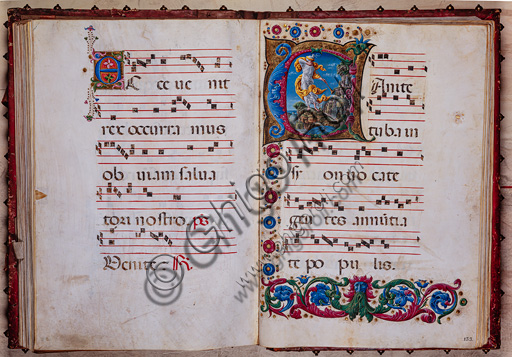 Ecce ue nit
rex occurra mus
ob uiam salua
tori nostro. ps.
Venite. R.
Canite
tuba in
sy on uo cate
gen tes annūtia
te po pu lis.
Ghigo Roli